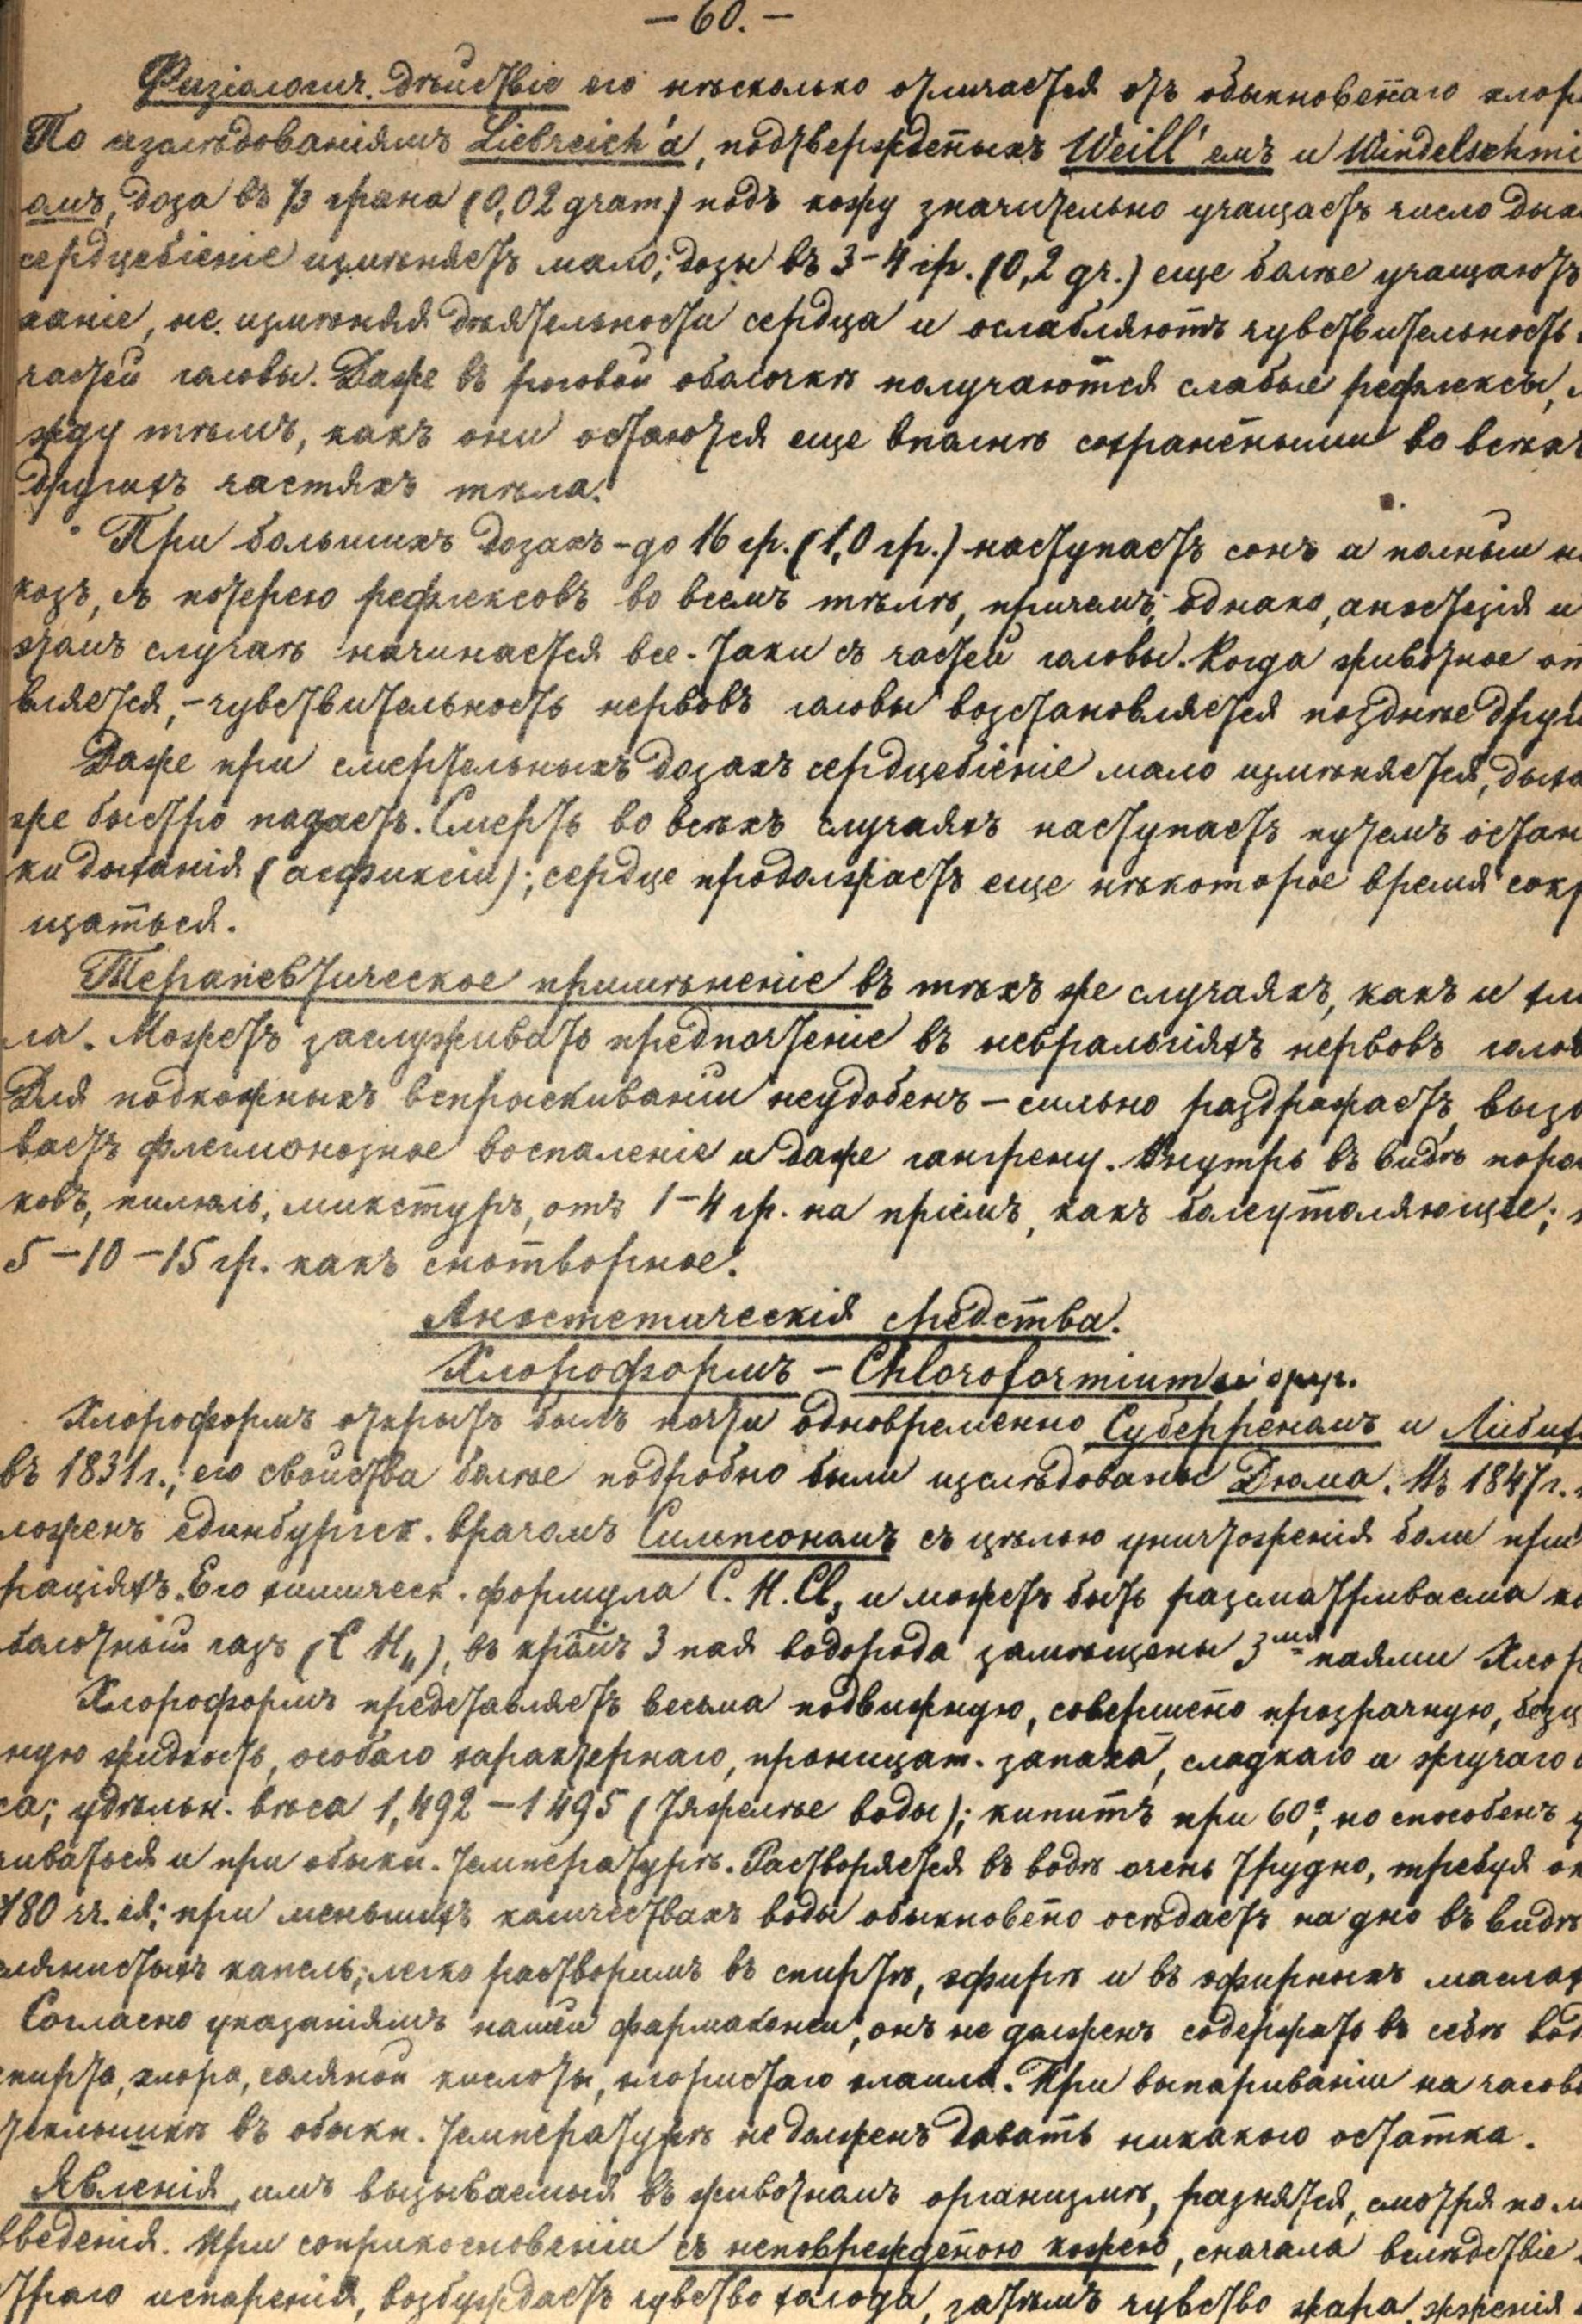 — 60. —
Физіологич. дѣйствіе его нѣсколько отличается отъ обыкновен̄аго хлор
По изслѣдованіямъ Liebreich'а, подтвержден̄ыхъ Weill'емъ и Windelschmi
омъ, доза въ ⅓ грана (0,02 gram.) подъ кожу значительно учащаетъ число дых
сердцебіеніе измѣняетъ мало; дозы въ 3–4 гр. (0,2 gr.) еще болѣе учащаютъ
ханіе, не измѣняя дѣятельности сердца и ослабляютъ чувствительность
частей головы. Даже въ роговой оболочкѣ получаются слабые рефлексы,
жду тѣмъ, какъ они остаются еще вполнѣ сохранен̄ыми во всѣхъ
другихъ частяхъ тѣла.
При большихъ дозахъ – до 16 гр. (1,0 гр.) наступаетъ сонъ и полный н
козъ, съ потерею рефлексовъ во всемъ тѣлѣ, причемъ, однако, анэстезія и
этомъ случаѣ начинается все-таки съ частей головы. Когда животное оп
вляется, – чувствительность нервовъ головы возстановляется позднѣе други
Даже при смертельныхъ дозахъ сердцебіеніе мало измѣняется, дыха
же быстро падаетъ. Смерть во всѣхъ случаяхъ наступаетъ путемъ остан
ки дыханія (асфиксіи); сердце продолжаетъ еще нѣкоторое время сокр
щаться.
Терапевтическое примѣненіе въ тѣхъ же случаяхъ, какъ и хло
ла. Можетъ заслуживать предпочтеніе въ невралгіяхъ нервовъ голов
Для подкожныхъ впрыскиваній неудобенъ – сильно раздражаетъ, вызы
ваетъ флегмонозное воспаленіе и даже гангрену. Внутрь въ видѣ порош
ковъ, пилюль, микстуръ, отъ 1–4 гр. на пріемъ, какъ болеутоляющее;
5–10–15 гр. какъ снотворное.
Анэстетическія средства.
Хлороформъ – Chloroformium
Хлороформъ открытъ былъ почти одновременно Суберреномъ и Либих
въ 1831 г.; его свойства болѣе подробно были изслѣдованы Дюма. Въ 1847 г.
ложенъ единбургск. врачомъ Симпсономъ съ цѣлью уничтоженія боли при
раціяхъ. Его химическ. формула C.H.Cl₃ и можетъ быть разсматриваема ка
болотный газъ (CH₄), въ кр̄омъ 3 пая водорода замѣщены 3мя паями Хлор
Хлороформъ представляетъ весьма подвижную, совершен̄о прозрачную, безц
ную жидкость, особаго характернаго, проницат. запаха, сладкаго и жгучаго в
са; удѣльн. вѣса 1,492–1495 (тяжелѣе воды); кипитъ при 60°, но способенъ у
чиваться и при обыкн. температурѣ. Растворяется въ водѣ очень трудно, требуя ок
180 чч. ея; при меньшихъ количествахъ воды обыкновен̄о осѣдаетъ на дно въ видѣ
слянистыхъ капель; легко растворимъ въ спиртѣ, эфирѣ и въ эфирныхъ маслах
Согласно указаніямъ нашей фармакопеи, онъ не долженъ содержать въ себѣ вод
спирта, хлора, соляной кислоты, хлористаго элаила. При выпариваніи на часово
теклышкѣ въ обыкн. температурѣ не долженъ давать никакого остатка.
Явленія, имъ вызываемыя въ животномъ организмѣ, разнятся, смотря по м
введенія. При соприкосновеніи съ неповрежден̄ою кожею, сначала вслѣдствіе
траго испаренія, возбуждаетъ чувство холода, затѣмъ чувство жара жженія